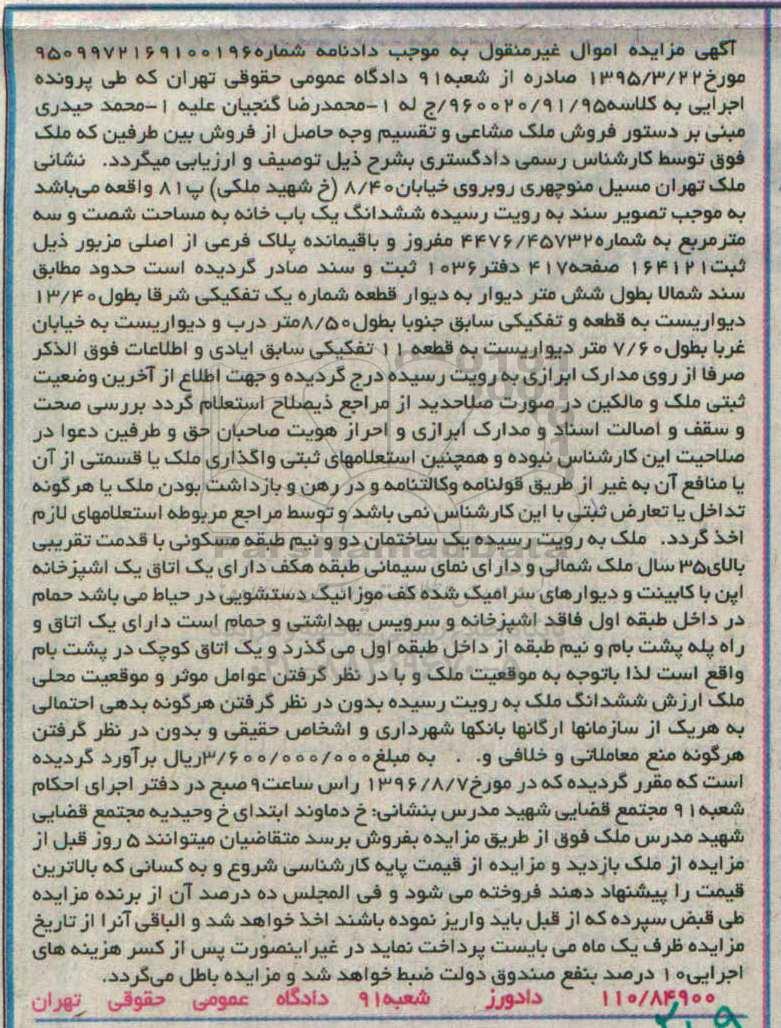 آگهی مزایده اموال غیرمنقول به موجب دادنامه شماره۹۵۰۹۹۷۲۱۶۹۱۰۰۱۹۶
مورخ۱۳۹۵/۳/۲۲ صادره از شعبه۹۱ دادگاه عمومی حقوقی تهران که طی پرونده
اجرایی به کلاسه۹۶۰۰۲۰/۹۱/۹۵/ج له ۱-محمدرضا گنجیان علیه ۱-محمد حیدری
مبنی بر دستور فروش ملک مشاعی و تقسیم وجه حاصل از فروش بین طرفین که ملک
فوق توسط کارشناس رسمی دادگستری بشرح ذیل توصیف و ارزیابی میگردد. نشانی
ملک تهران مسیل منوچهری روبروی خیابان۸/۴۰ (خ شهید ملکی) پ۸۱ واقعه می‌باشد
به موجب تصویر سند به رویت رسیده ششدانگ یک باب خانه به مساحت شصت و سه
مترمربع به شماره۴۴۷۶/۴۵۷۳۲ مفروز و باقیمانده پلاک فرعی از اصلی مزبور ذیل
ثبت۱۶۴۱۲۱ صفحه۴۱۷ دفتر۱۰۳۶ ثبت و سند صادر گردیده است حدود مطابق
سند شمالا بطول شش متر دیوار به دیوار قطعه شماره یک تفکیکی شرقا بطول۱۳/۴۰
دیواریست به قطعه و تفکیکی سابق جنوبا بطول۸/۵۰متر درب و دیواریست به خیابان
غربا بطول۷/۶۰ متر دیواریست به قطعه ۱۱ تفکیکی سابق ایادی و اطلاعات فوق الذکر
صرفا از روی مدارک ابرازی به رویت رسیده درج گردیده و جهت اطلاع از آخرین وضعیت
ثبتی ملک و مالکین در صورت صلاحدید از مراجع ذیصلاح استعلام گردد بررسی صحت
و سقف و اصالت اسناد و مدارک ابرازی و احراز هویت صاحبان حق و طرفین دعوا در
صلاحیت این کارشناس نبوده و همچنین استعلامهای ثبتی واگذاری ملک یا قسمتی از آن
یا منافع آن به غیر از طریق قولنامه وکالتنامه و در رهن و بازداشت بودن ملک یا هرگونه
تداخل یا تعارض ثبتی با این کارشناس نمی باشد و توسط مراجع مربوطه استعلامهای لازم
اخذ گردد. ملک به رویت رسیده یک ساختمان دو و نیم طبقه مسکونی با قدمت تقریبی
بالای۳۵ سال ملک شمالی و دارای نمای سیمانی طبقه هکف دارای یک اتاق یک اشپزخانه
اپن با کابینت و دیوارهای سرامیک شده کف موزائیک دستشویی در حیاط می باشد حمام
در داخل طبقه اول فاقد اشپزخانه و سرویس بهداشتی و حمام است دارای یک اتاق و
راه پله پشت بام و نیم طبقه از داخل طبقه اول می گذرد و یک اتاق کوچک در پشت بام
واقع است لذا باتوجه به موقعیت ملک و با در نظر گرفتن عوامل موثر و موقعیت محلی
ملک ارزش ششدانگ ملک به رویت رسیده بدون در نظر گرفتن هرگونه بدهی احتمالی
به هریک از سازمانها ارگانها بانکها شهرداری و اشخاص حقیقی و بدون در نظر گرفتن
هرگونه منع معاملاتی و خلافی و. . به مبلغ۳/۶۰۰/۰۰۰/۰۰۰ریال برآورد گردیده
است که مقرر گردیده که در مورخ۱۳۹۶/۸/۷ راس ساعت۹صبح در دفتر اجرای احکام
شعبه۹۱ مجتمع قضایی شهید مدرس بنشانی: خ دماوند ابتدای خ وحیدیه مجتمع قضایی
شهید مدرس ملک فوق از طریق مزایده بفروش برسد متقاضیان میتوانند ۵ روز قبل از
مزایده از ملک بازدید و مزایده از قیمت پایه کارشناسی شروع و به کسانی که بالاترین
قیمت را پیشنهاد دهند فروخته می شود و فی المجلس ده درصد آن از برنده مزایده
طی قبض سپرده که از قبل باید واریز نموده باشند اخذ خواهد شد و الباقی آنرا از تاریخ
مزایده ظرف یک ماه می بایست پرداخت نماید در غیراینصورت پس از کسر هزینه های
اجرایی۱۰ درصد بنفع صندوق دولت ضبط خواهد شد و مزایده باطل می‌گردد.
۱۱۰/۸۴۹۰۰ دادورز شعبه۹۱ دادگاه عمومی حقوقی تهران